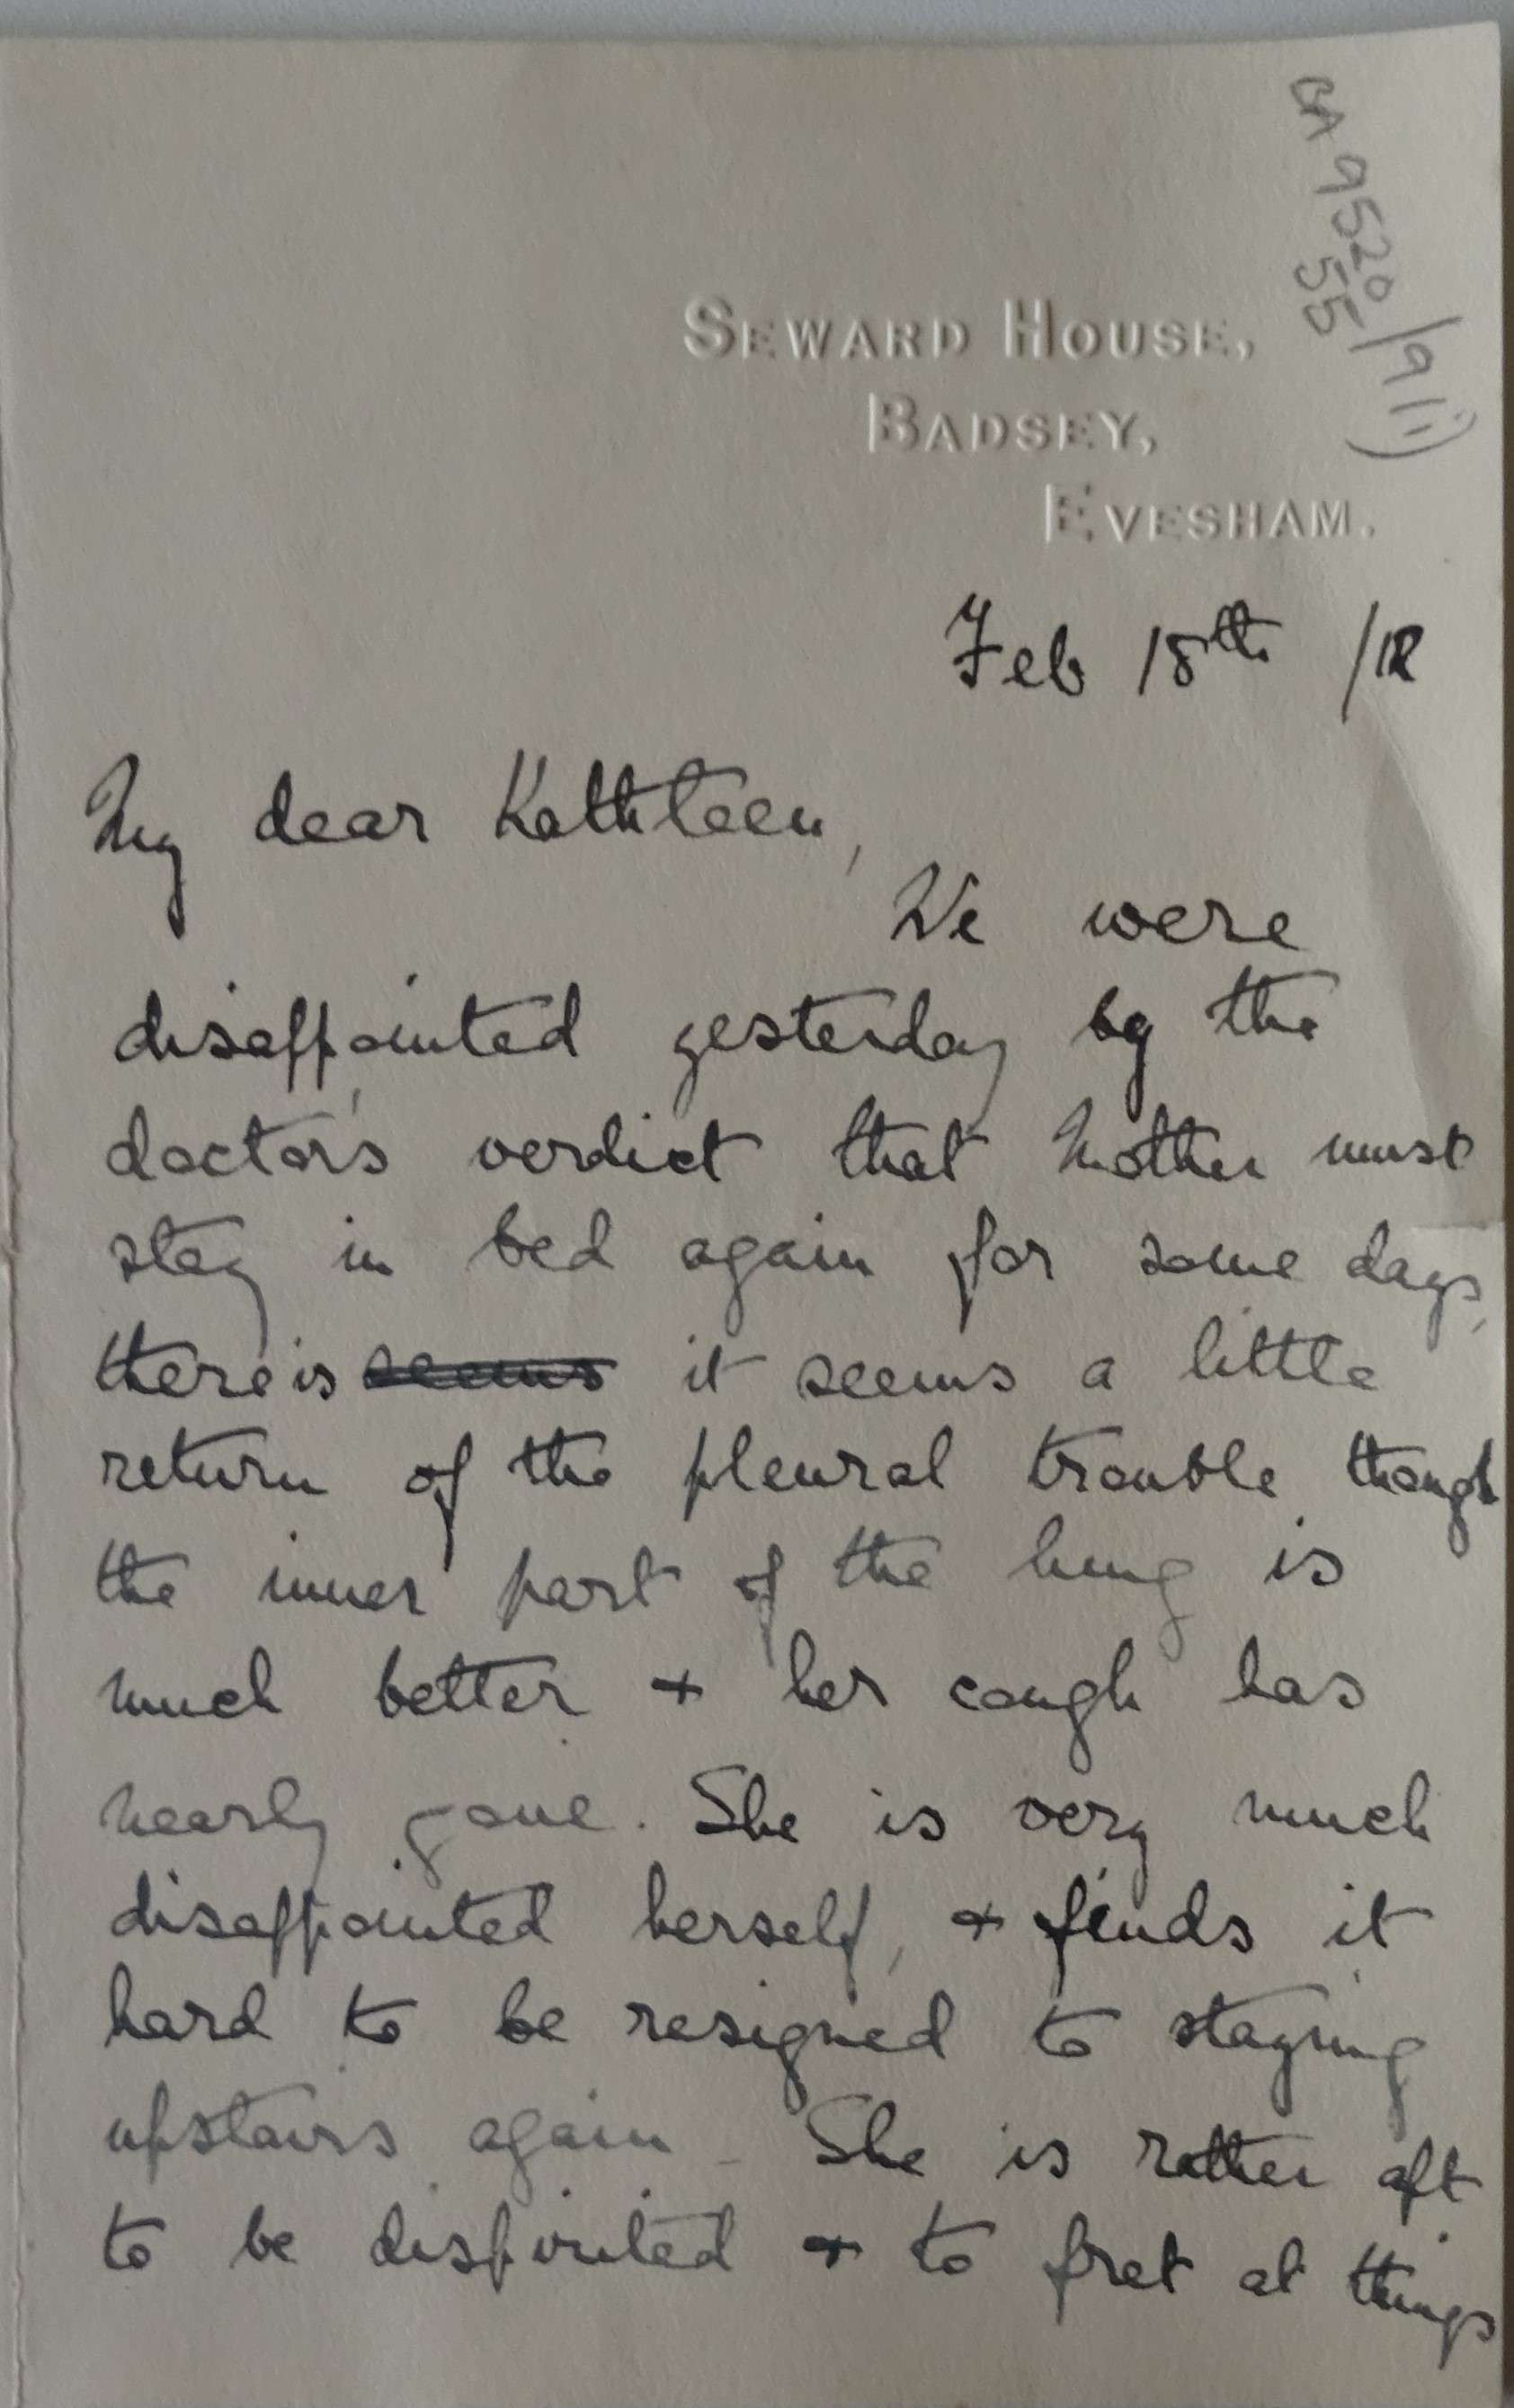 BA 9520/9(i)
55
SEWARD HOUSE,
BADSEY,
EVESHAM.
Feb 18th /12
My dear Kathleen,
We were
disappointed yesterday by the
doctor's verdict that Mother must
stay in bed again for some days,
there is seems it seems a little
return of the pleural trouble though
the inner part of the lung is
much better + her cough has
nearly gone. She is very much
disappointed herself, + finds it
hard to be resigned to staying
upstairs again - She is rather apt
to be dispirited + to fret at things